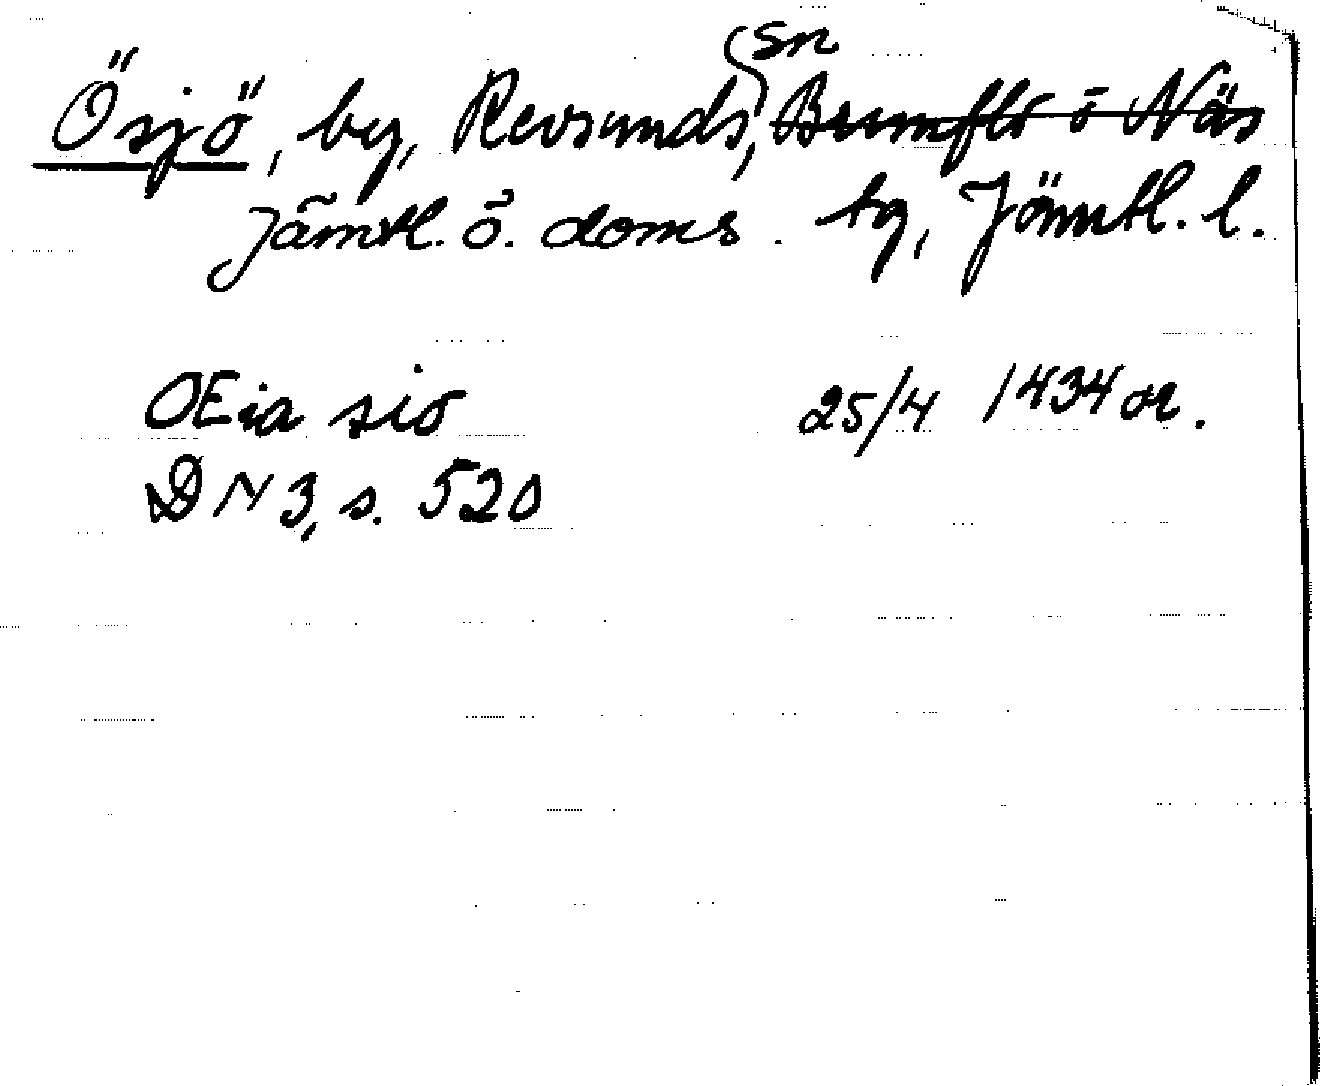 Ösjö, by, Revsunds sn, ~~Brunflo o Näs~~
Jämtl. ö. doms. tg, Jämtl. l.
OEia sio 25/4 1434 or.
DN 3, s. 520